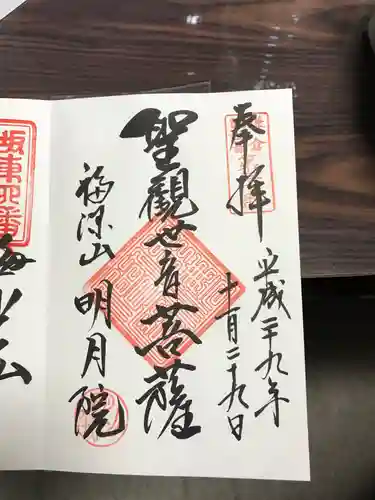 奉拝
平成二十九年
十一月二十九日
聖觀世音菩薩
福源山
明月院
坂東四番